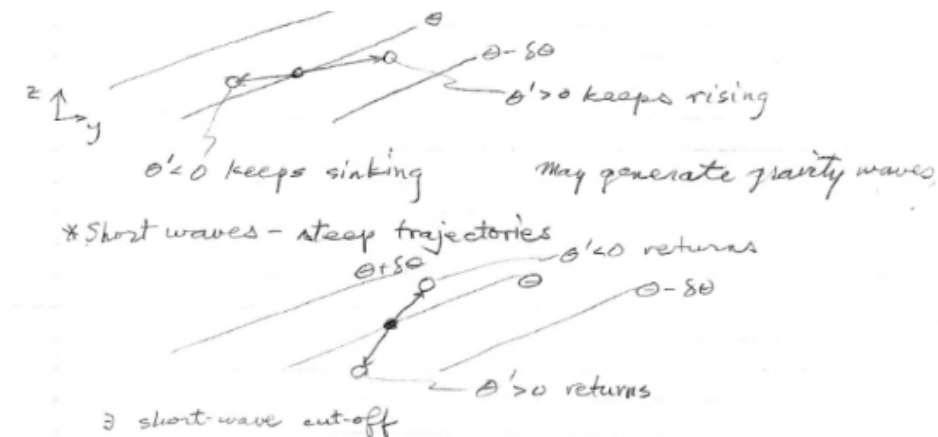 θ
θ - δθ
z
y
θ'>0 keeps rising
θ'<0 keeps sinking
May generate gravity waves,
* Short waves - steep trajectories
θ'<0 returns
θ+δθ
θ
θ - δθ
θ'>0 returns
∃ short-wave cut-off